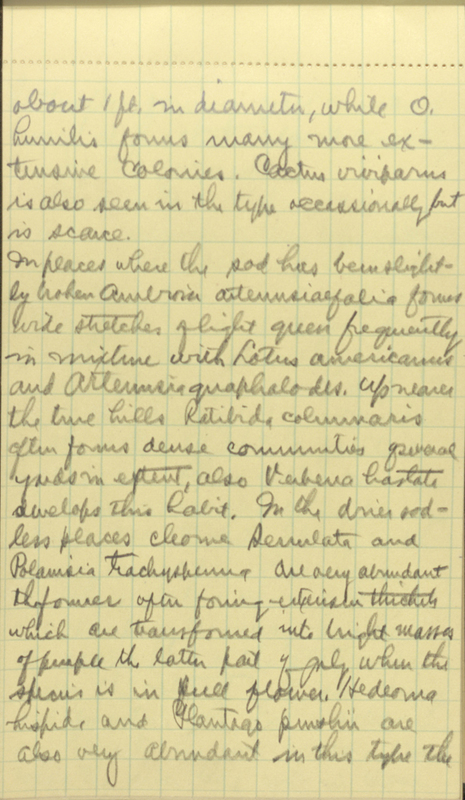 about 1 ft. in diameter, while O.
humilis forms many more ex-
tensive colonies. Cactus viviparus
is also seen in the type occassionally but
is scarce.
In places where the sod has been slight-
ly broken Ambrosia artemisiaefolia forms
wide stretches of light green frequently
in mixture with Lotus americanus
and Artemisia gnaphalodes. Up nearer
the true hills Ratibida columnaris
often forms dense communities several
yards in extent, also Verbena hastata
develops this habit. In the drier sod-
less places cleome serrulata and
Polanisia trachysperma are very abundant
the former often foring extensive thickets
which are transformed into bright masses
of purple the latter part of July when the
species is in full flower. Hedeoma
hispida and Plantago purshii are
also very abundant in this type the